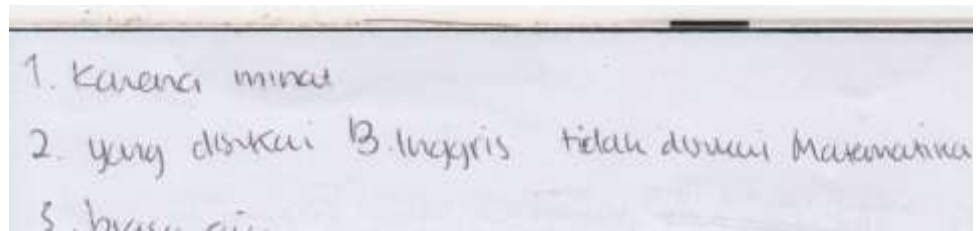 1. Karena minat
2. yang disukai B. Inggris tidak disukai Matematika
3. biasa